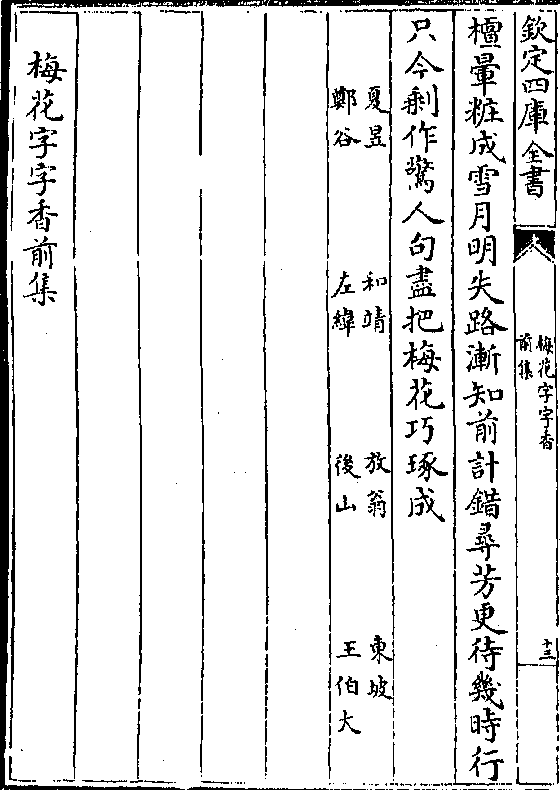 欽定四庫全書
梅花字字香
前集
十三
檀暈粧成雪月明失路漸知前計錯尋芳更待幾時行
只今剩作驚人句盡把梅花巧琢成
夏昱 和靖 放翁 東坡
鄭谷 左緯 後山 王伯大
梅花字字香前集